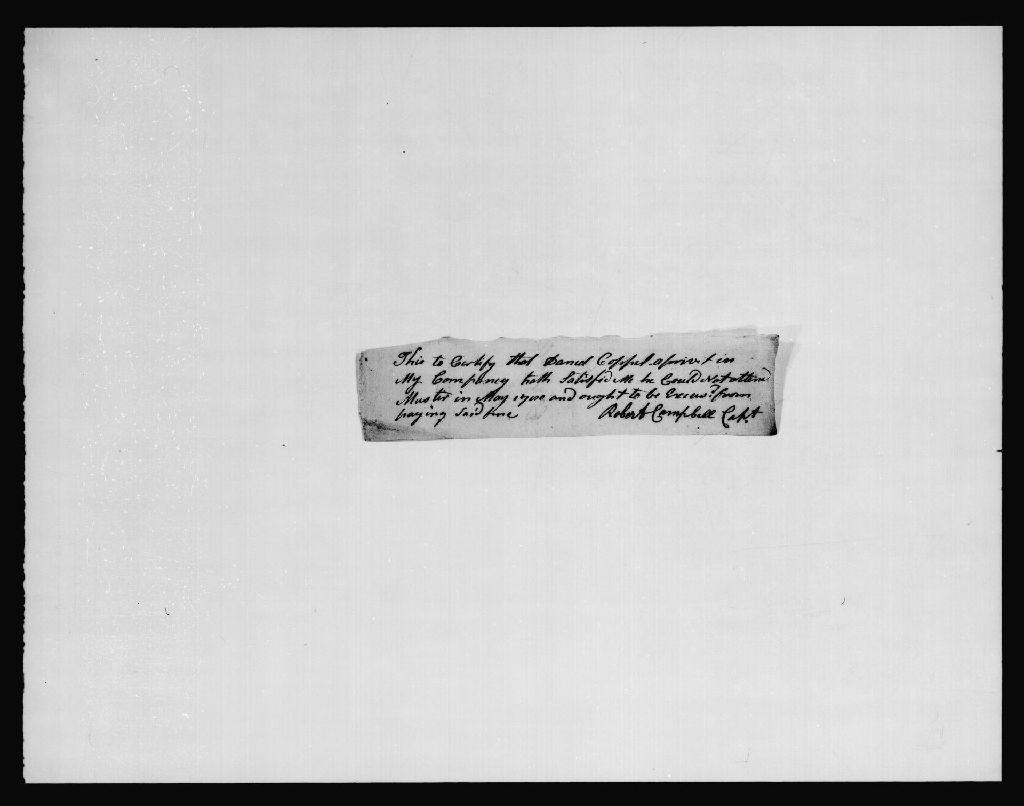 This to Certify that Daniel a privit in
My Company hath Satisfid Me he Could Not attend
Muster in May and ought to be Excus.d from
paying Said fine Robert Campbell Capt